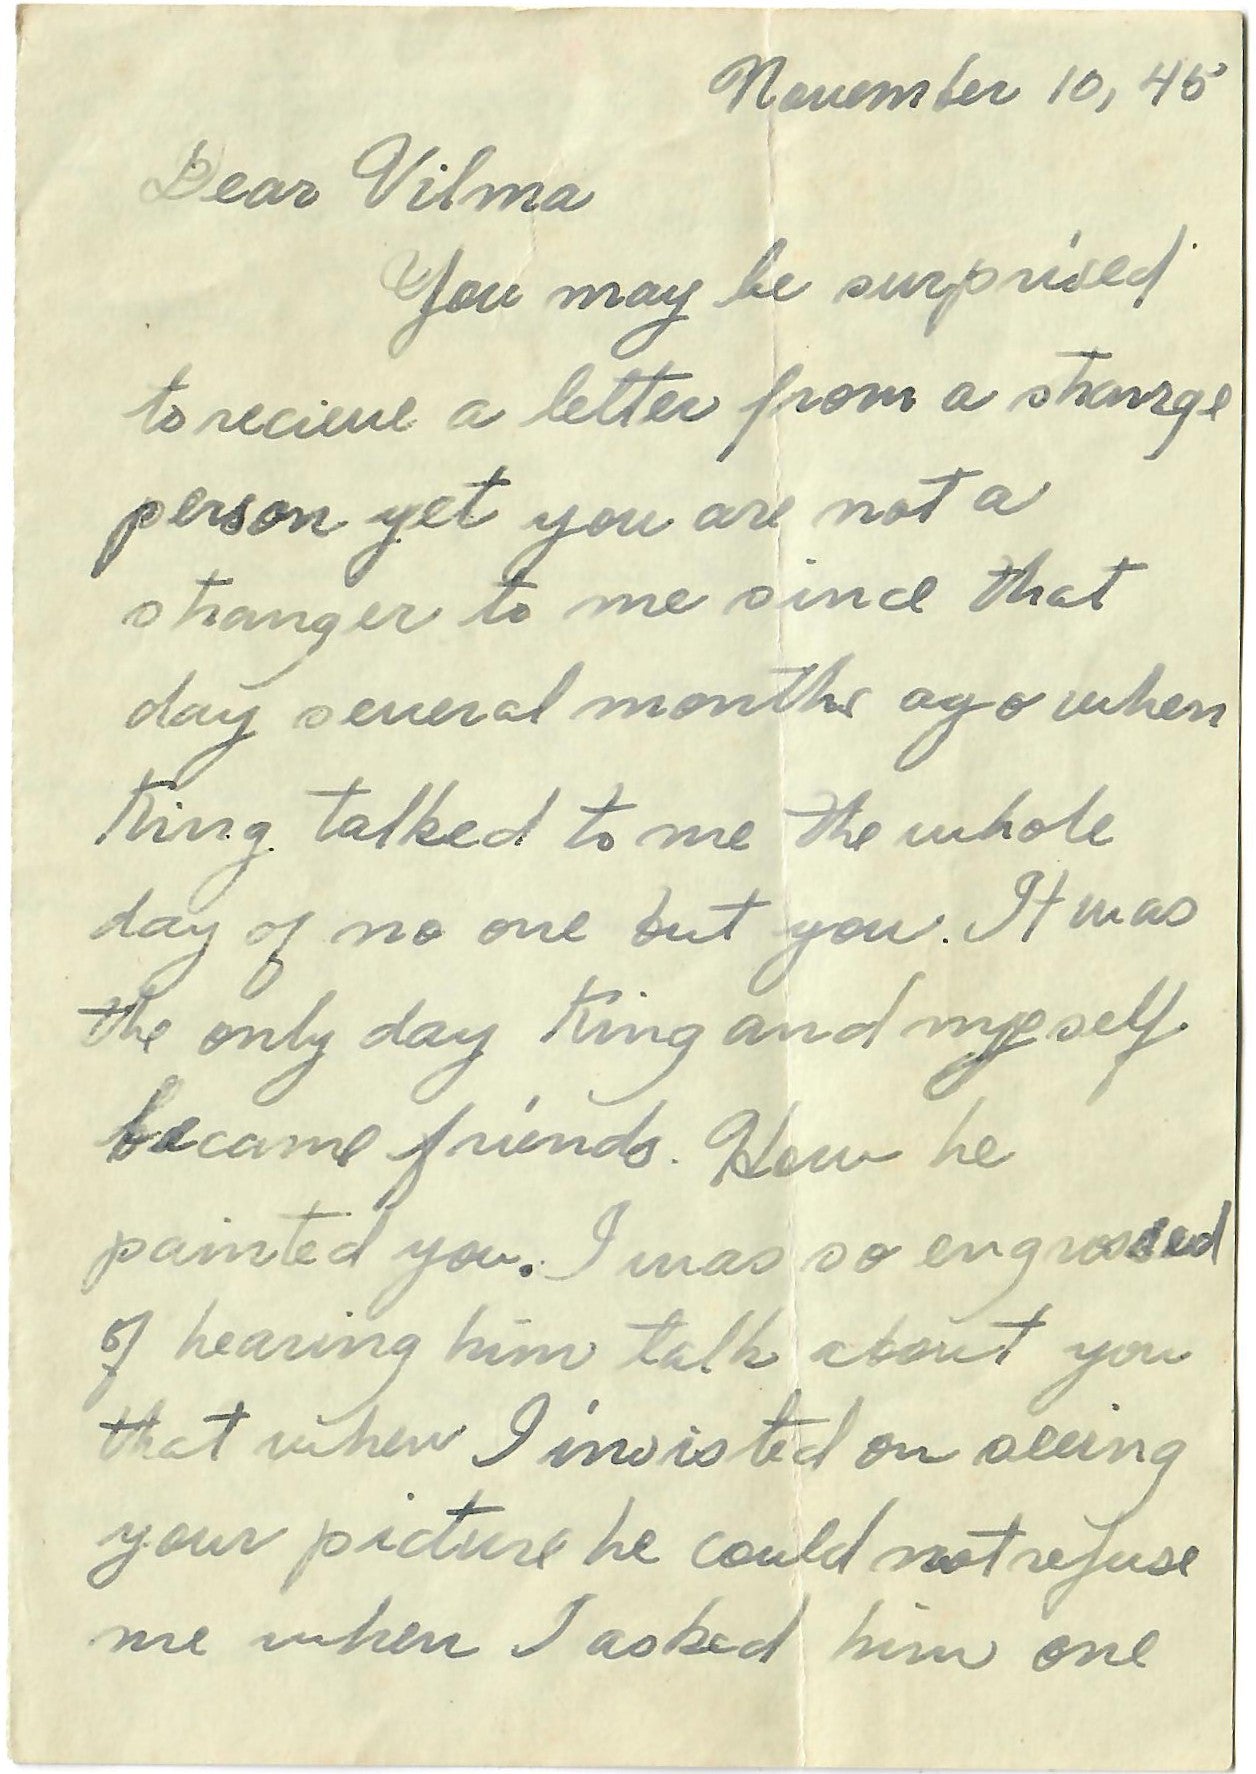 November 10, 45
Dear Vilma
You may be surprised
to recieve a letter from a strange
person yet you are not a
stranger to me since that
day several months ago when
King talked to me the whole
day of no one but you. It was
the only day King and myself
became friends. How he
painted you. I was so engrossed
of hearing him talk about you
that when I insisted on seeing
your picture he could not refuse
me when I asked him one